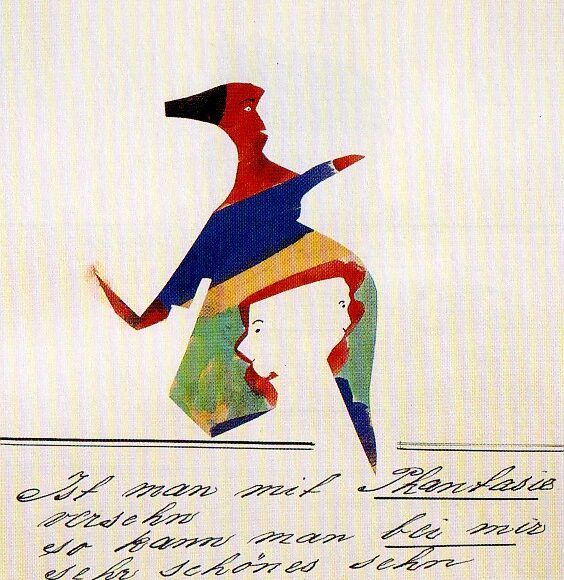 Ist man mit Phantasie
versehn
so kann man bei mir
sehr schönes sehn